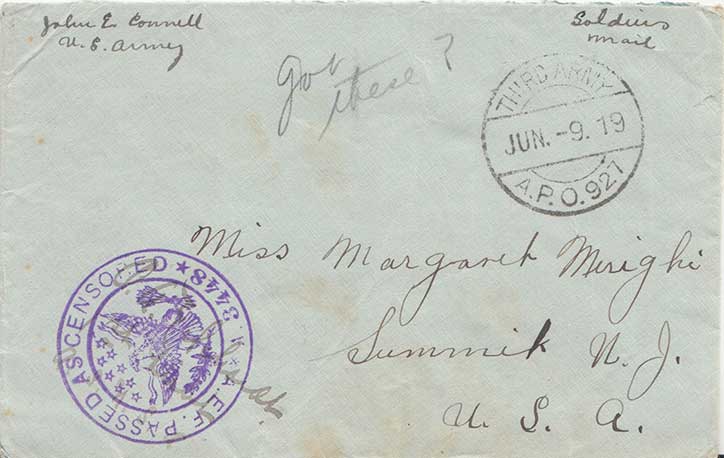 John E Connell
U.S. Army
Soldiers
Mail
got
these?
THIRD ARMY
JUN.-9.19
A.P.O.927
Miss Margaret Merighi
Summit N.J.
U.S.A.
A.E.F. PASSED AS CENSORED ★ 3448